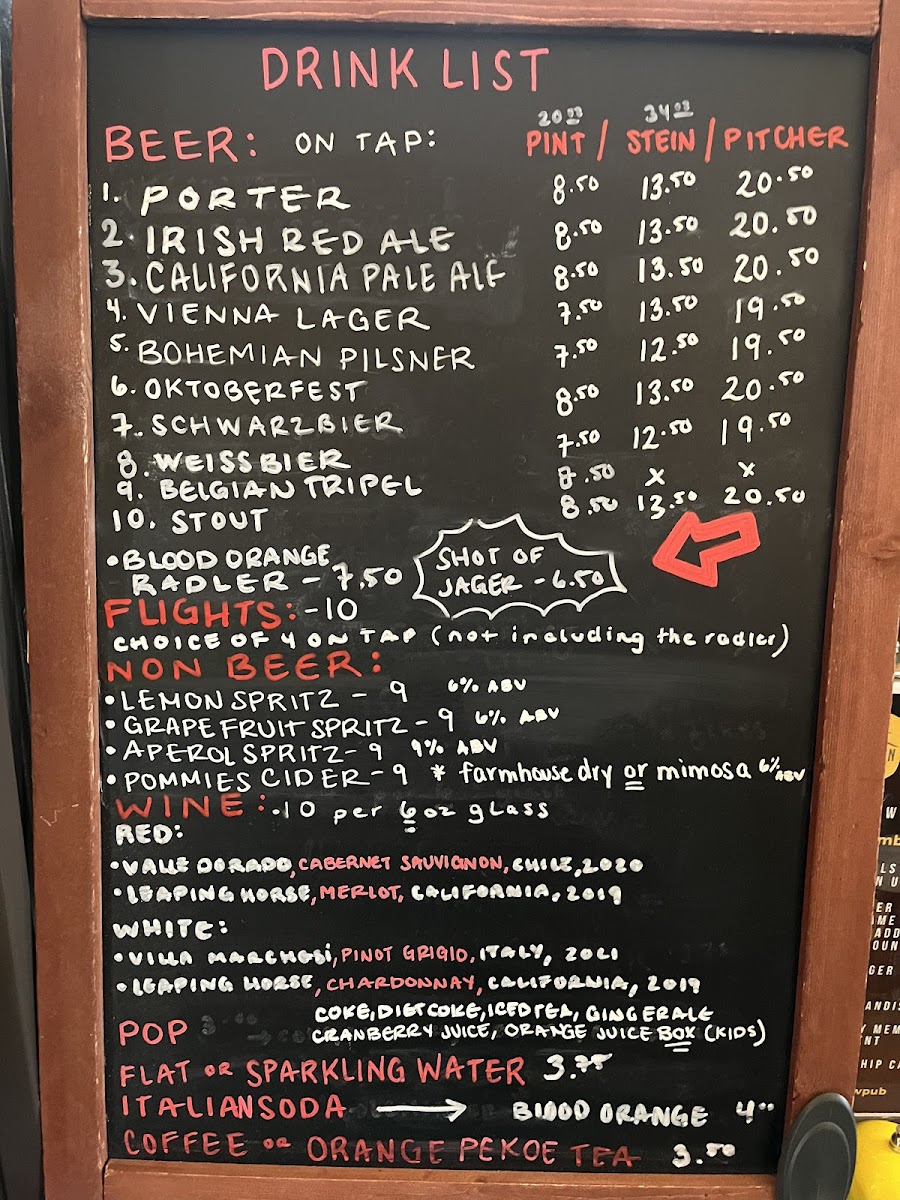 DRINK LIST
BEER: ON TAP: 20 oz PINT / 34 oz STEIN / PITCHER
1. PORTER 8.50 13.50 20.50
2. IRISH RED ALE 8.50 13.50 20.50
3. CALIFORNIA PALE ALE 8.50 13.50 20.50
4. VIENNA LAGER 7.50 13.50 19.50
5. BOHEMIAN PILSNER 7.50 12.50 19.50
6. OKTOBERFEST 8.50 13.50 20.50
7. SCHWARZBIER 7.50 12.50 19.50
8. WEISSBIER
9. BELGIAN TRIPEL 8.50 x x
10. STOUT 8.50 13.50 20.50
•BLOOD ORANGE
RADLER - 7.50
SHOT OF
JAGER - 6.50
FLIGHTS: -10
CHOICE OF 4 ON TAP (not including the radler)
NON BEER:
•LEMON SPRITZ - 9 6% ABV
•GRAPEFRUIT SPRITZ - 9 6% ABV
•APEROL SPRITZ - 9 9% ABV
•POMMIES CIDER - 9 * farmhouse dry or mimosa 6% ABV
WINE: -10 per 6 oz glass
RED:
•VALLE DORADO, CABERNET SAUVIGNON, CHILE, 2020
•LEAPING HORSE, MERLOT, CALIFORNIA, 2019
WHITE:
•VILLA MARCHESI, PINOT GRIGIO, ITALY, 2021
•LEAPING HORSE, CHARDONNAY, CALIFORNIA, 2019
COKE, DIET COKE, ICED TEA, GINGERALE
POP CRANBERRY JUICE, ORANGE JUICE BOX (KIDS)
FLAT OR SPARKLING WATER 3.75
ITALIAN SODA → BLOOD ORANGE 4.00
COFFEE OR ORANGE PEKOE TEA 3.50